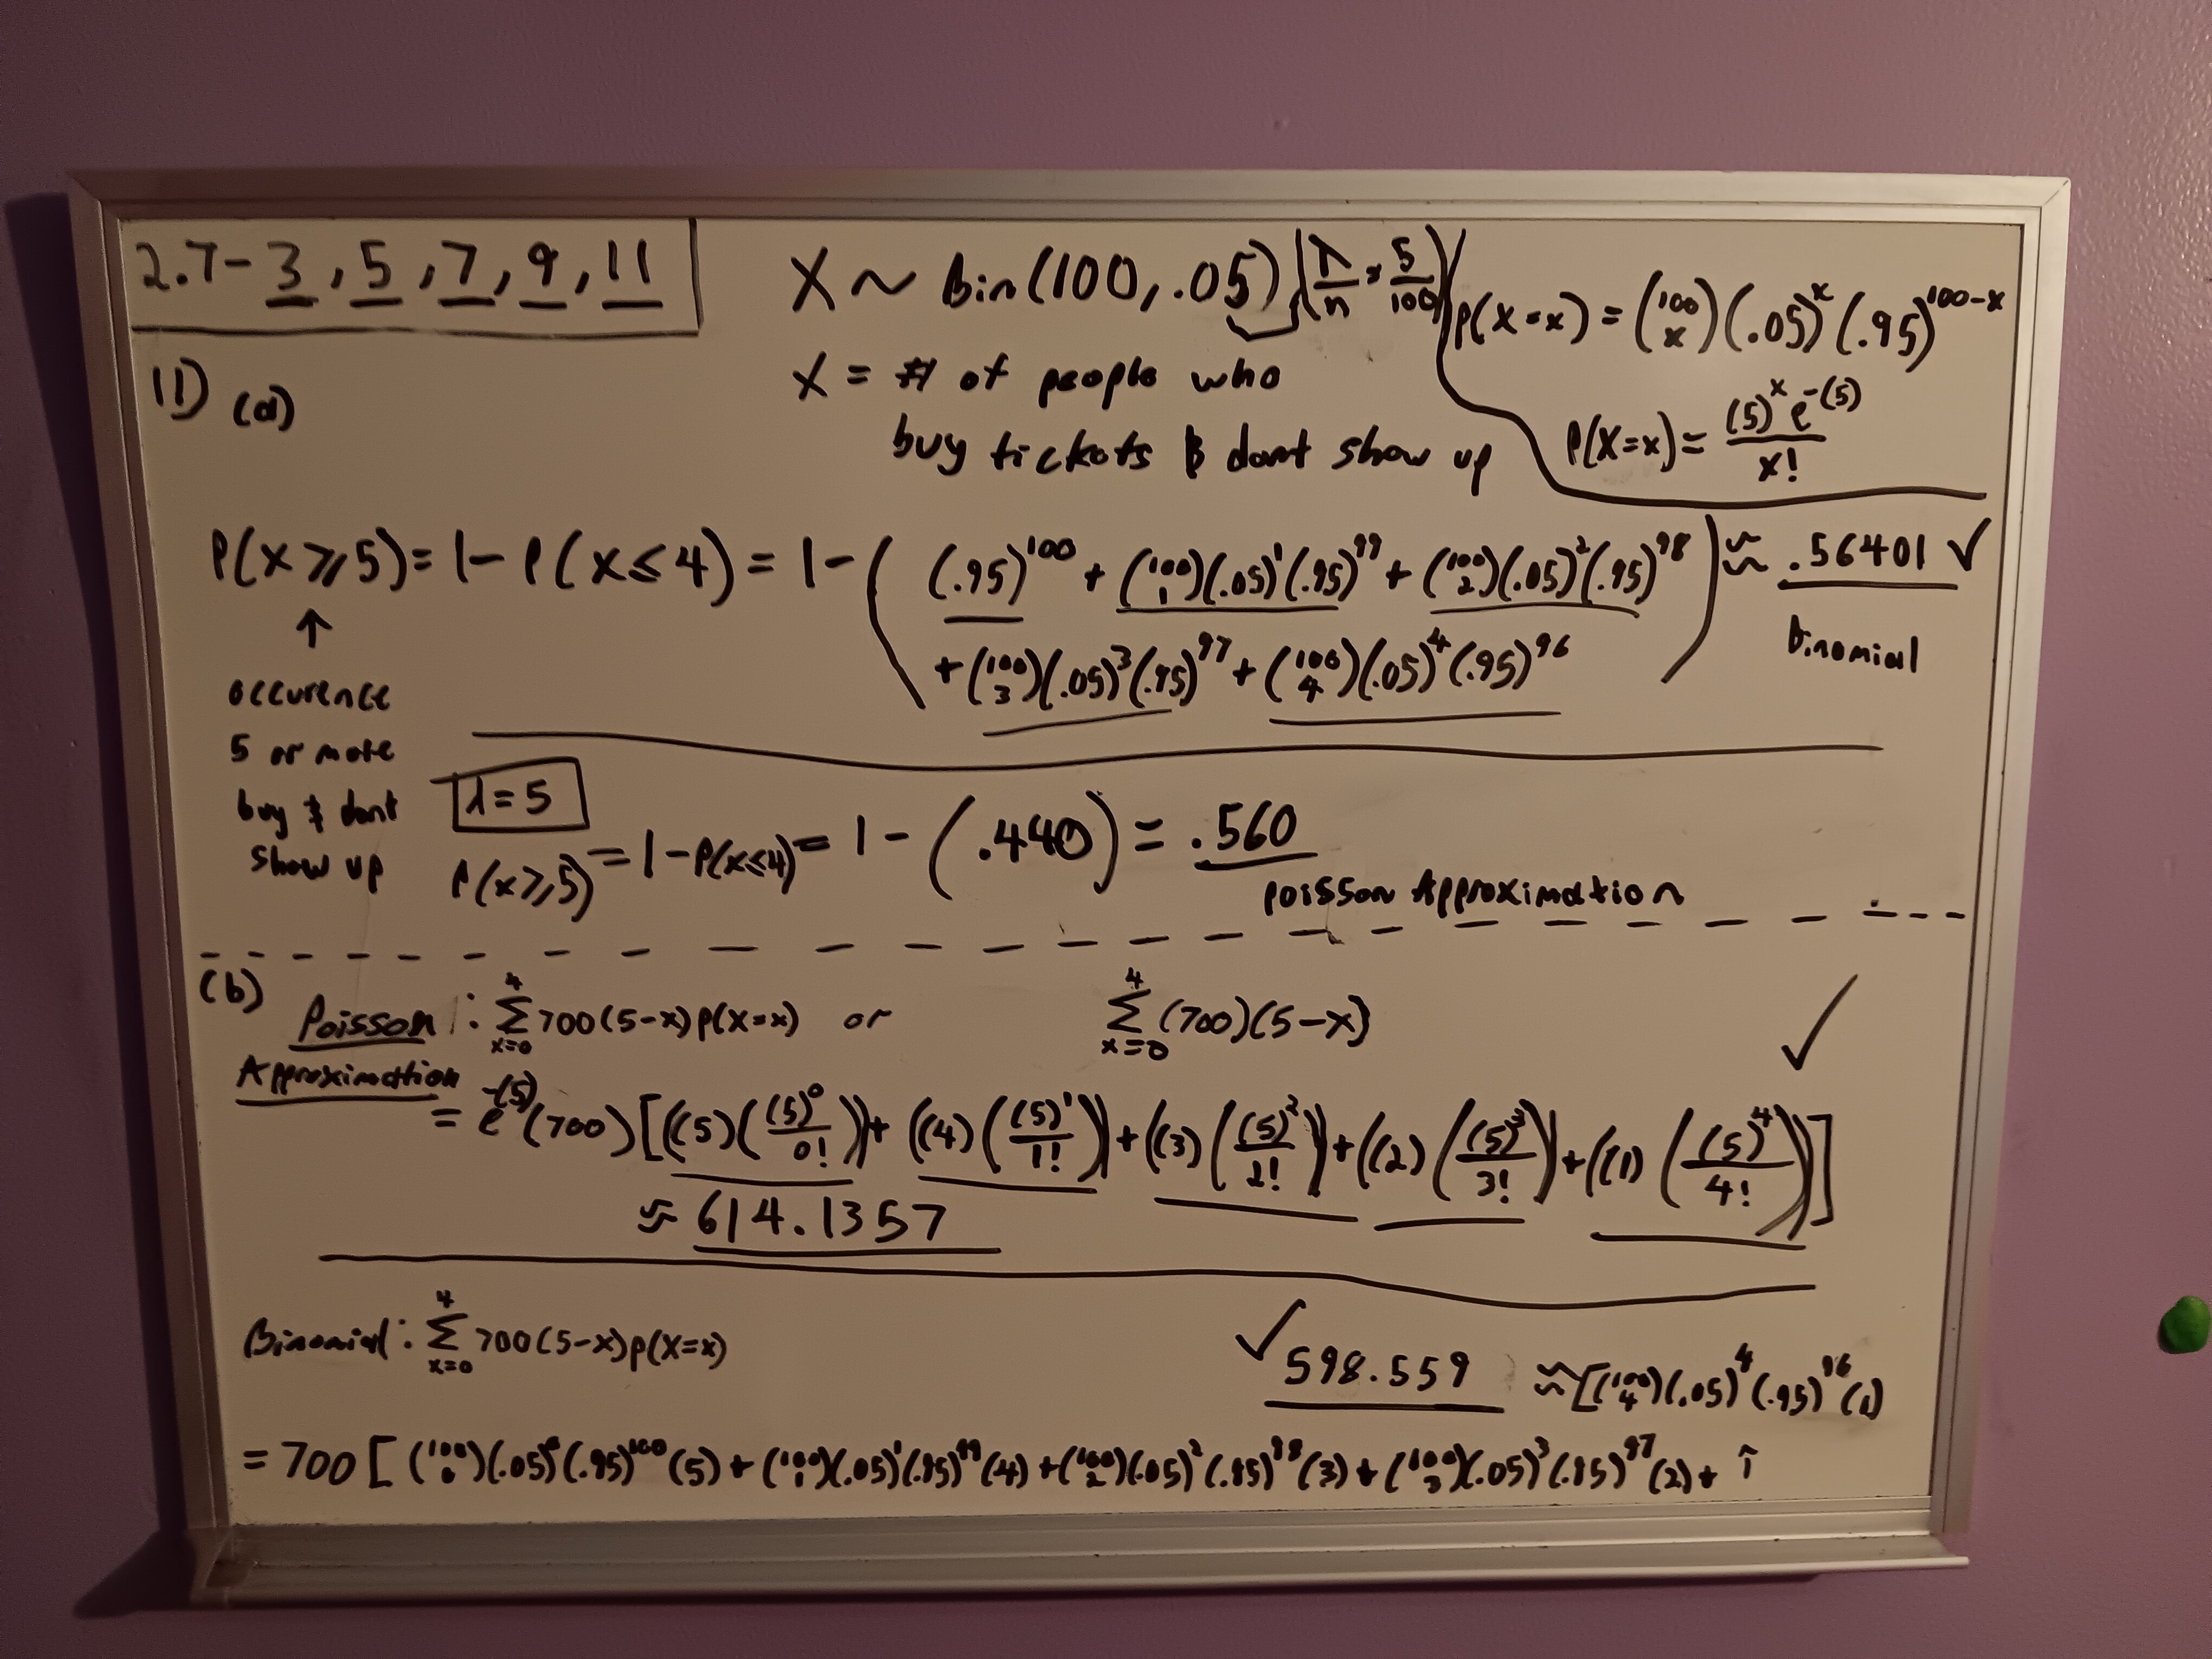 2.7- 3, 5, 7, 9, 11
X ~ Bin(100, .05) {λ/n = 5/100}
P(X=x) = (100 x)(.05)^x(.95)^100-x
11) (a)
X = # of people who
buy tickets & dont show up
P(X=x) = (5)^x e^-(5) / x!
P(X≥5) = 1 - P(X≤4) = 1 - ( (.95)^100 + (100 1)(.05)^1(.95)^99 + (100 2)(.05)^2(.95)^98
+ (100 3)(.05)^3(.95)^97 + (100 4)(.05)^4(.95)^96 ) ≈ .56401 ✓
Binomial
↑
occurence
5 or more
buy & dont
show up
λ=5
P(X≥5) = 1 - P(X≤4) = 1 - (.440) = .560
Poisson Approximation
(b) Poisson Approximation : Σ^4 x=0 700(5-x)P(X=x) or Σ^4 x=0 (700)(5-x) ✓
= e^-(5)(700)[((5)((5)^0/0!)) + ((4)((5)^1/1!)) + ((3)((5)^2/2!)) + ((2)((5)^3/3!)) + ((1)((5)^4/4!))]
≈ 614.1357
Binomial : Σ^4 x=0 700(5-x)P(X=x)
✓ 598.559 ≈ [(100 4)(.05)^4(.95)^96(1)
= 700 [(100 0)(.05)^0(.95)^100(5) + (100 1)(.05)^1(.95)^99(4) + (100 2)(.05)^2(.95)^98(3) + (100 3)(.05)^3(.95)^97(2) + ↑